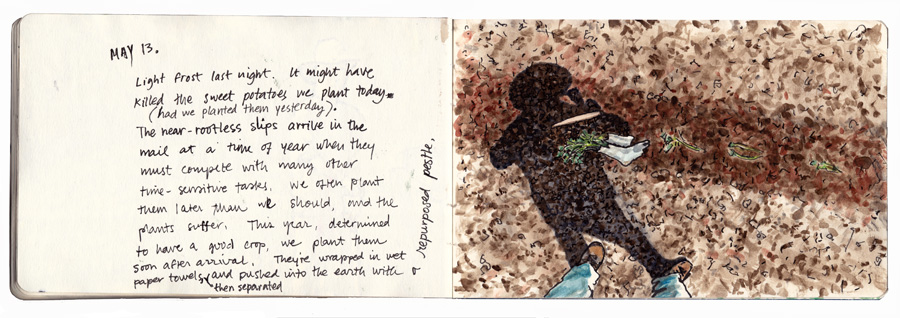 MAY 13.
Light frost last night. It might have
killed the sweet potatoes we plant today
(had we planted them yesterday).
The near-rootless slips arrive in the
mail at a time of year when they
must compete with many other
time-sensitive tasks. We often plant
them later than we should, and the
plants suffer. This year, determined
to have a good crop, we plant them
soon after arrival. They're wrapped in wet
paper towels, and pushed into the earth with a
then separated
repurposed pestle.